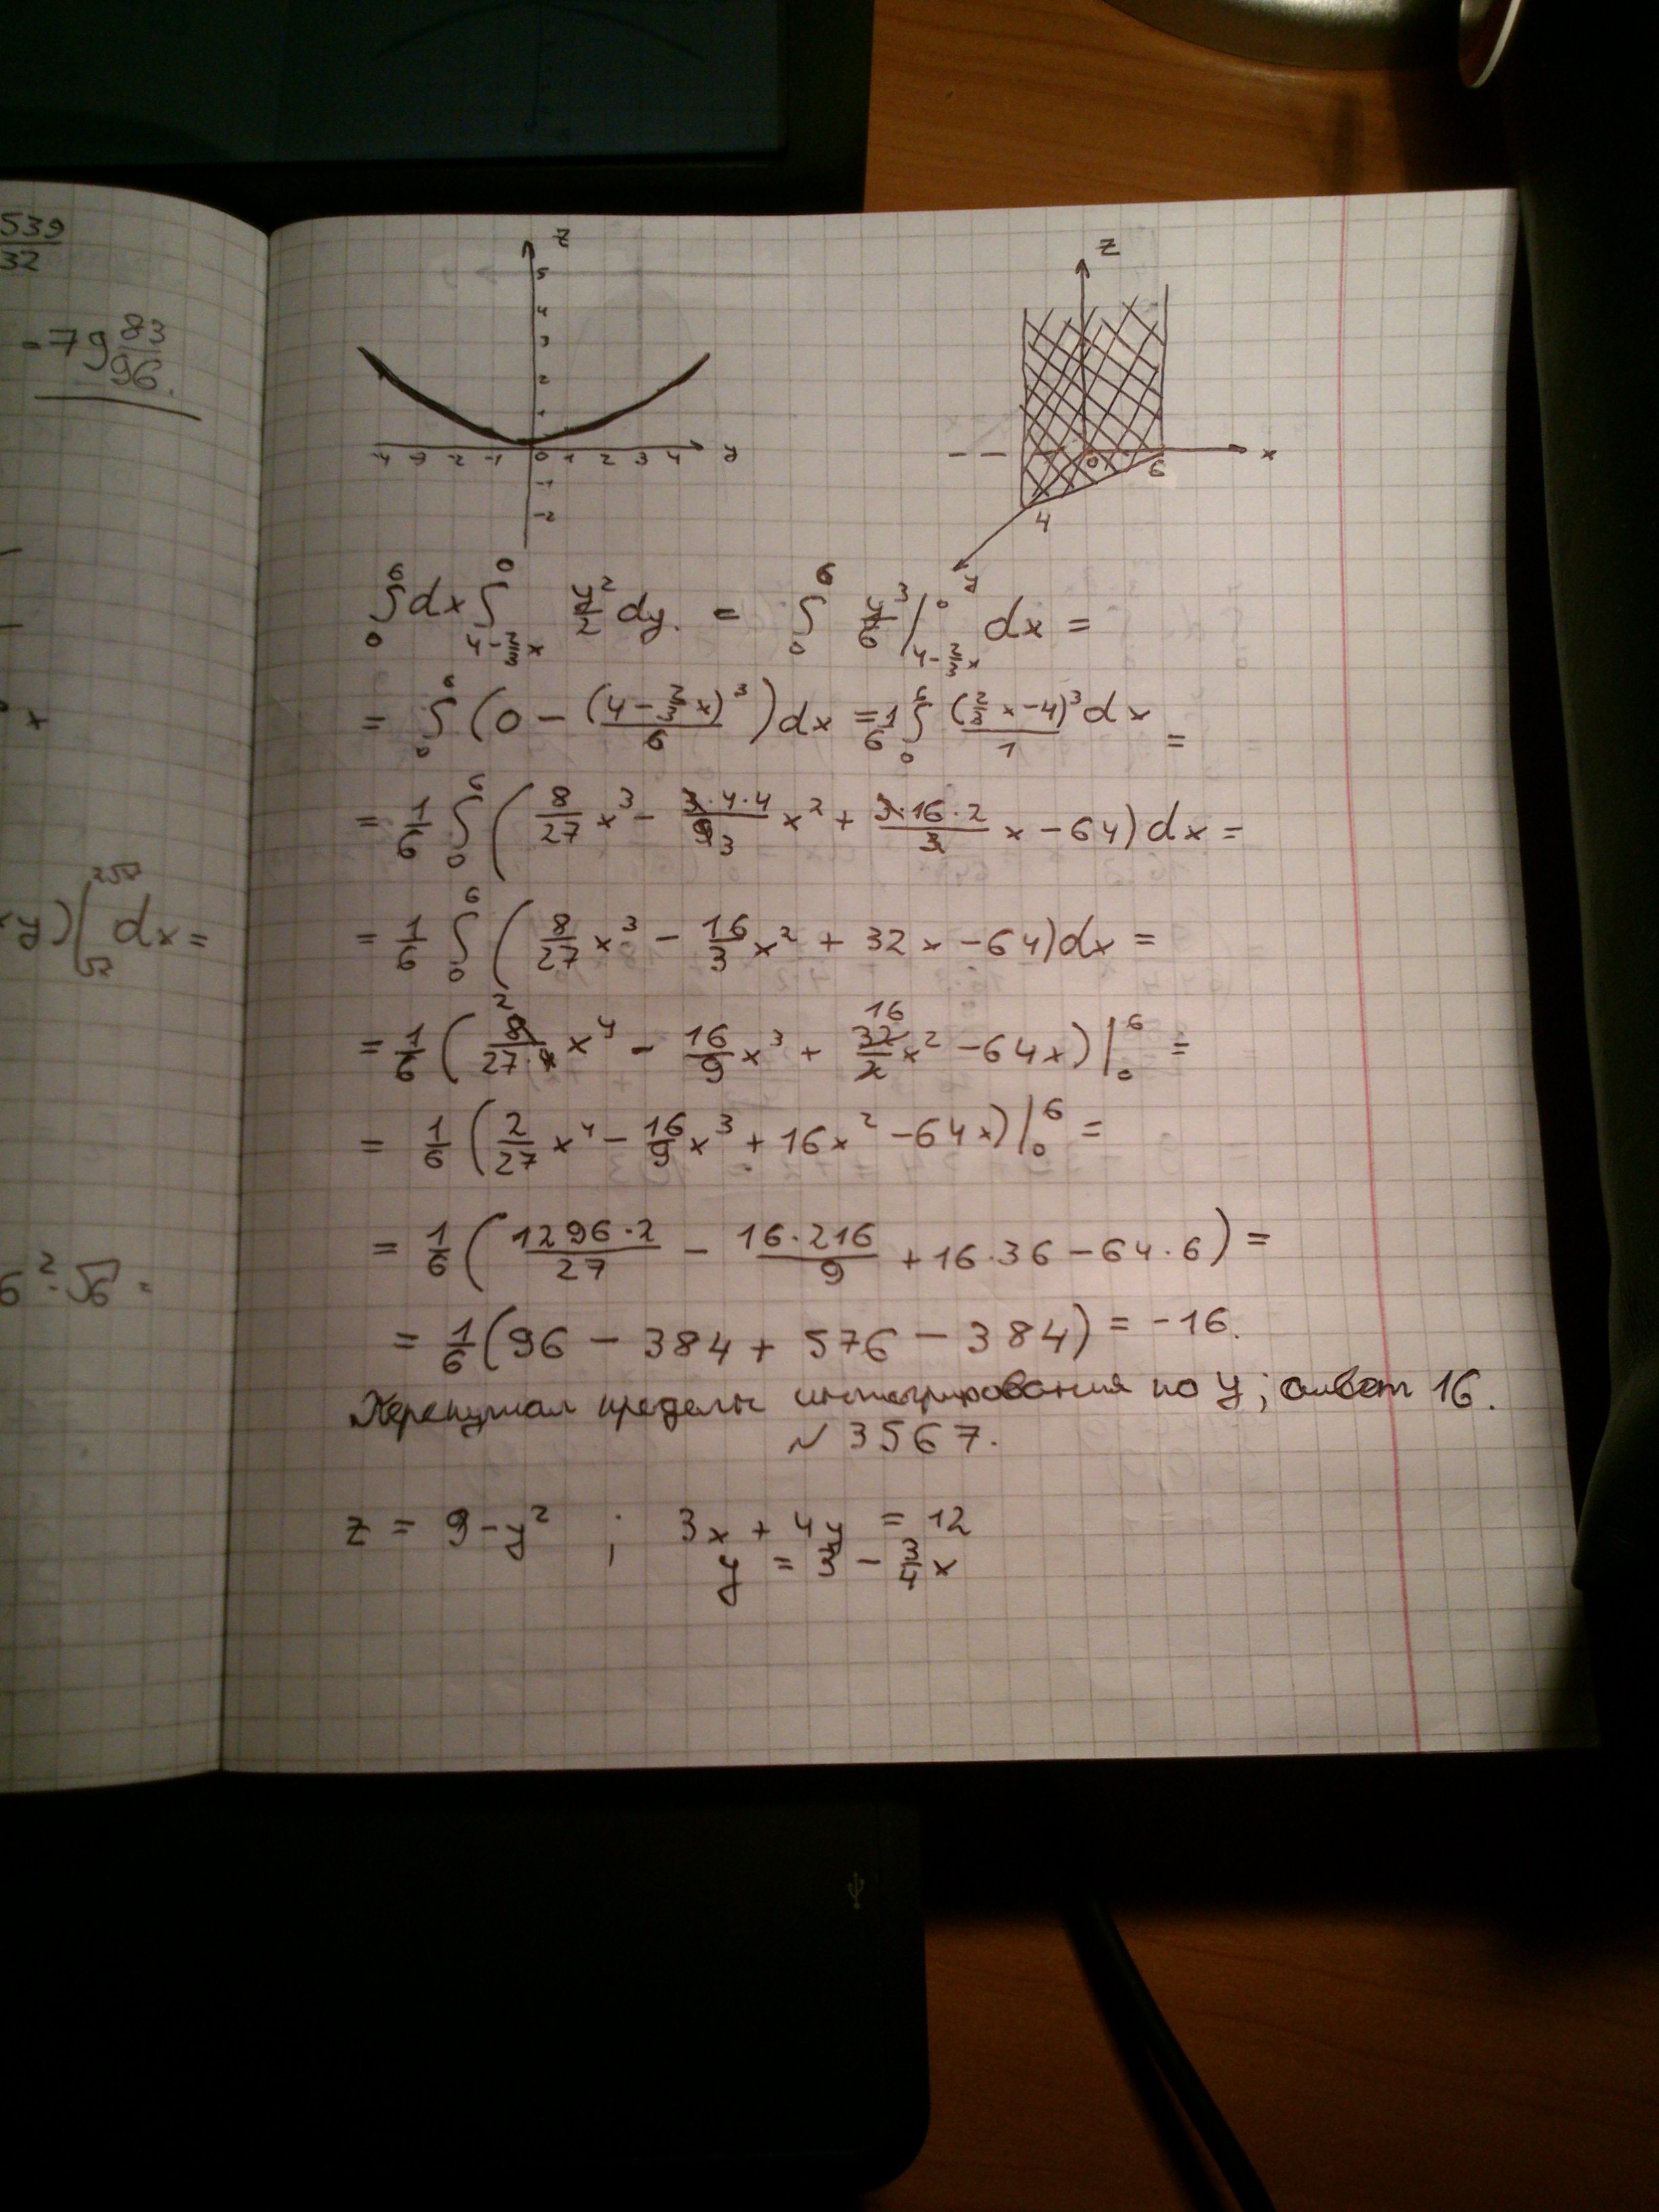 539
32
= 79 83/96.
x
y) |₅ₓ^25x dx =
6² · √6 =
z
5
4
3
2
1
-4 -3 -2 -1 0 1 2 3 4 y
-1
-2
z
0 6 x
4
y
∫₀⁶ dx ∫_{4-2/3x}^0 y²/2 dy. = ∫₀⁶ y³/6 |_{4-2/3x}^0 dx =
= ∫₀⁶ (0 - (4 - 2/3 x)³/6) dx = 1/6 ∫₀⁶ (2/3 x - 4)³/1 dx =
= 1/6 ∫₀⁶ (8/27 x³ - 3·4·4/9 3 x² + 3·16·2/3 x - 64) dx =
= 1/6 ∫₀⁶ (8/27 x³ - 16/3 x² + 32x - 64) dx =
= 1/6 (2 8/27·4 x⁴ - 16/9 x³ + 16 32/2 x² - 64x) |₀⁶ =
= 1/6 (2/27 x⁴ - 16/9 x³ + 16x² - 64x) |₀⁶ =
= 1/6 (1296·2/27 - 16·216/9 + 16·36 - 64·6) =
= 1/6 (96 - 384 + 576 - 384) = -16.
Перепутал пределы интегрирования по y; ответ 16.
№ 3567.
z = 9 - y² ; 3x + 4y = 12
y = 3 - 3/4 x